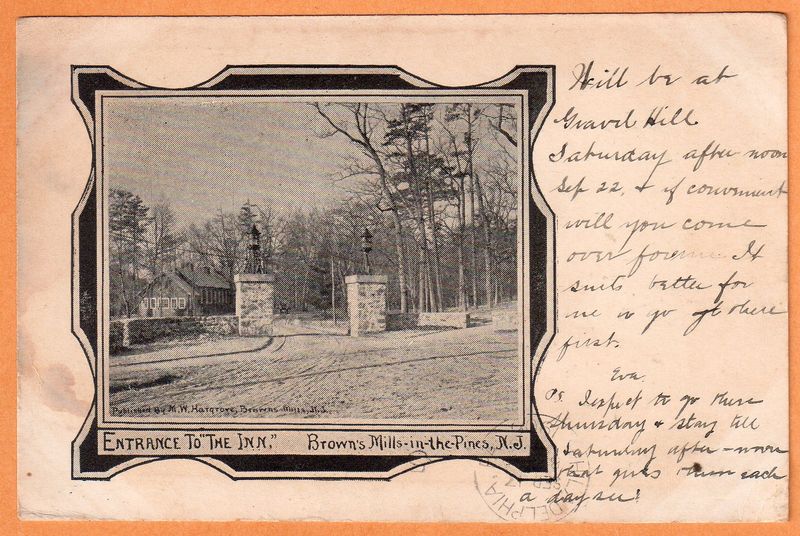 Published By M.W. Hargrove, Browns-Mills, N.J.
ENTRANCE TO "THE INN," BROWN'S MILLS-IN-THE-PINES, N.J.
Will be at
Gravel Hill
Saturday after noon
Sep 22. & if convenient
will you come
over for me It
suits better for
me to go there
first.
Eva.
Ps. I expect to go there
thursday & stay till
Saturday after-noon
that gives them each
a day see!
DELPHIA
SEP
17